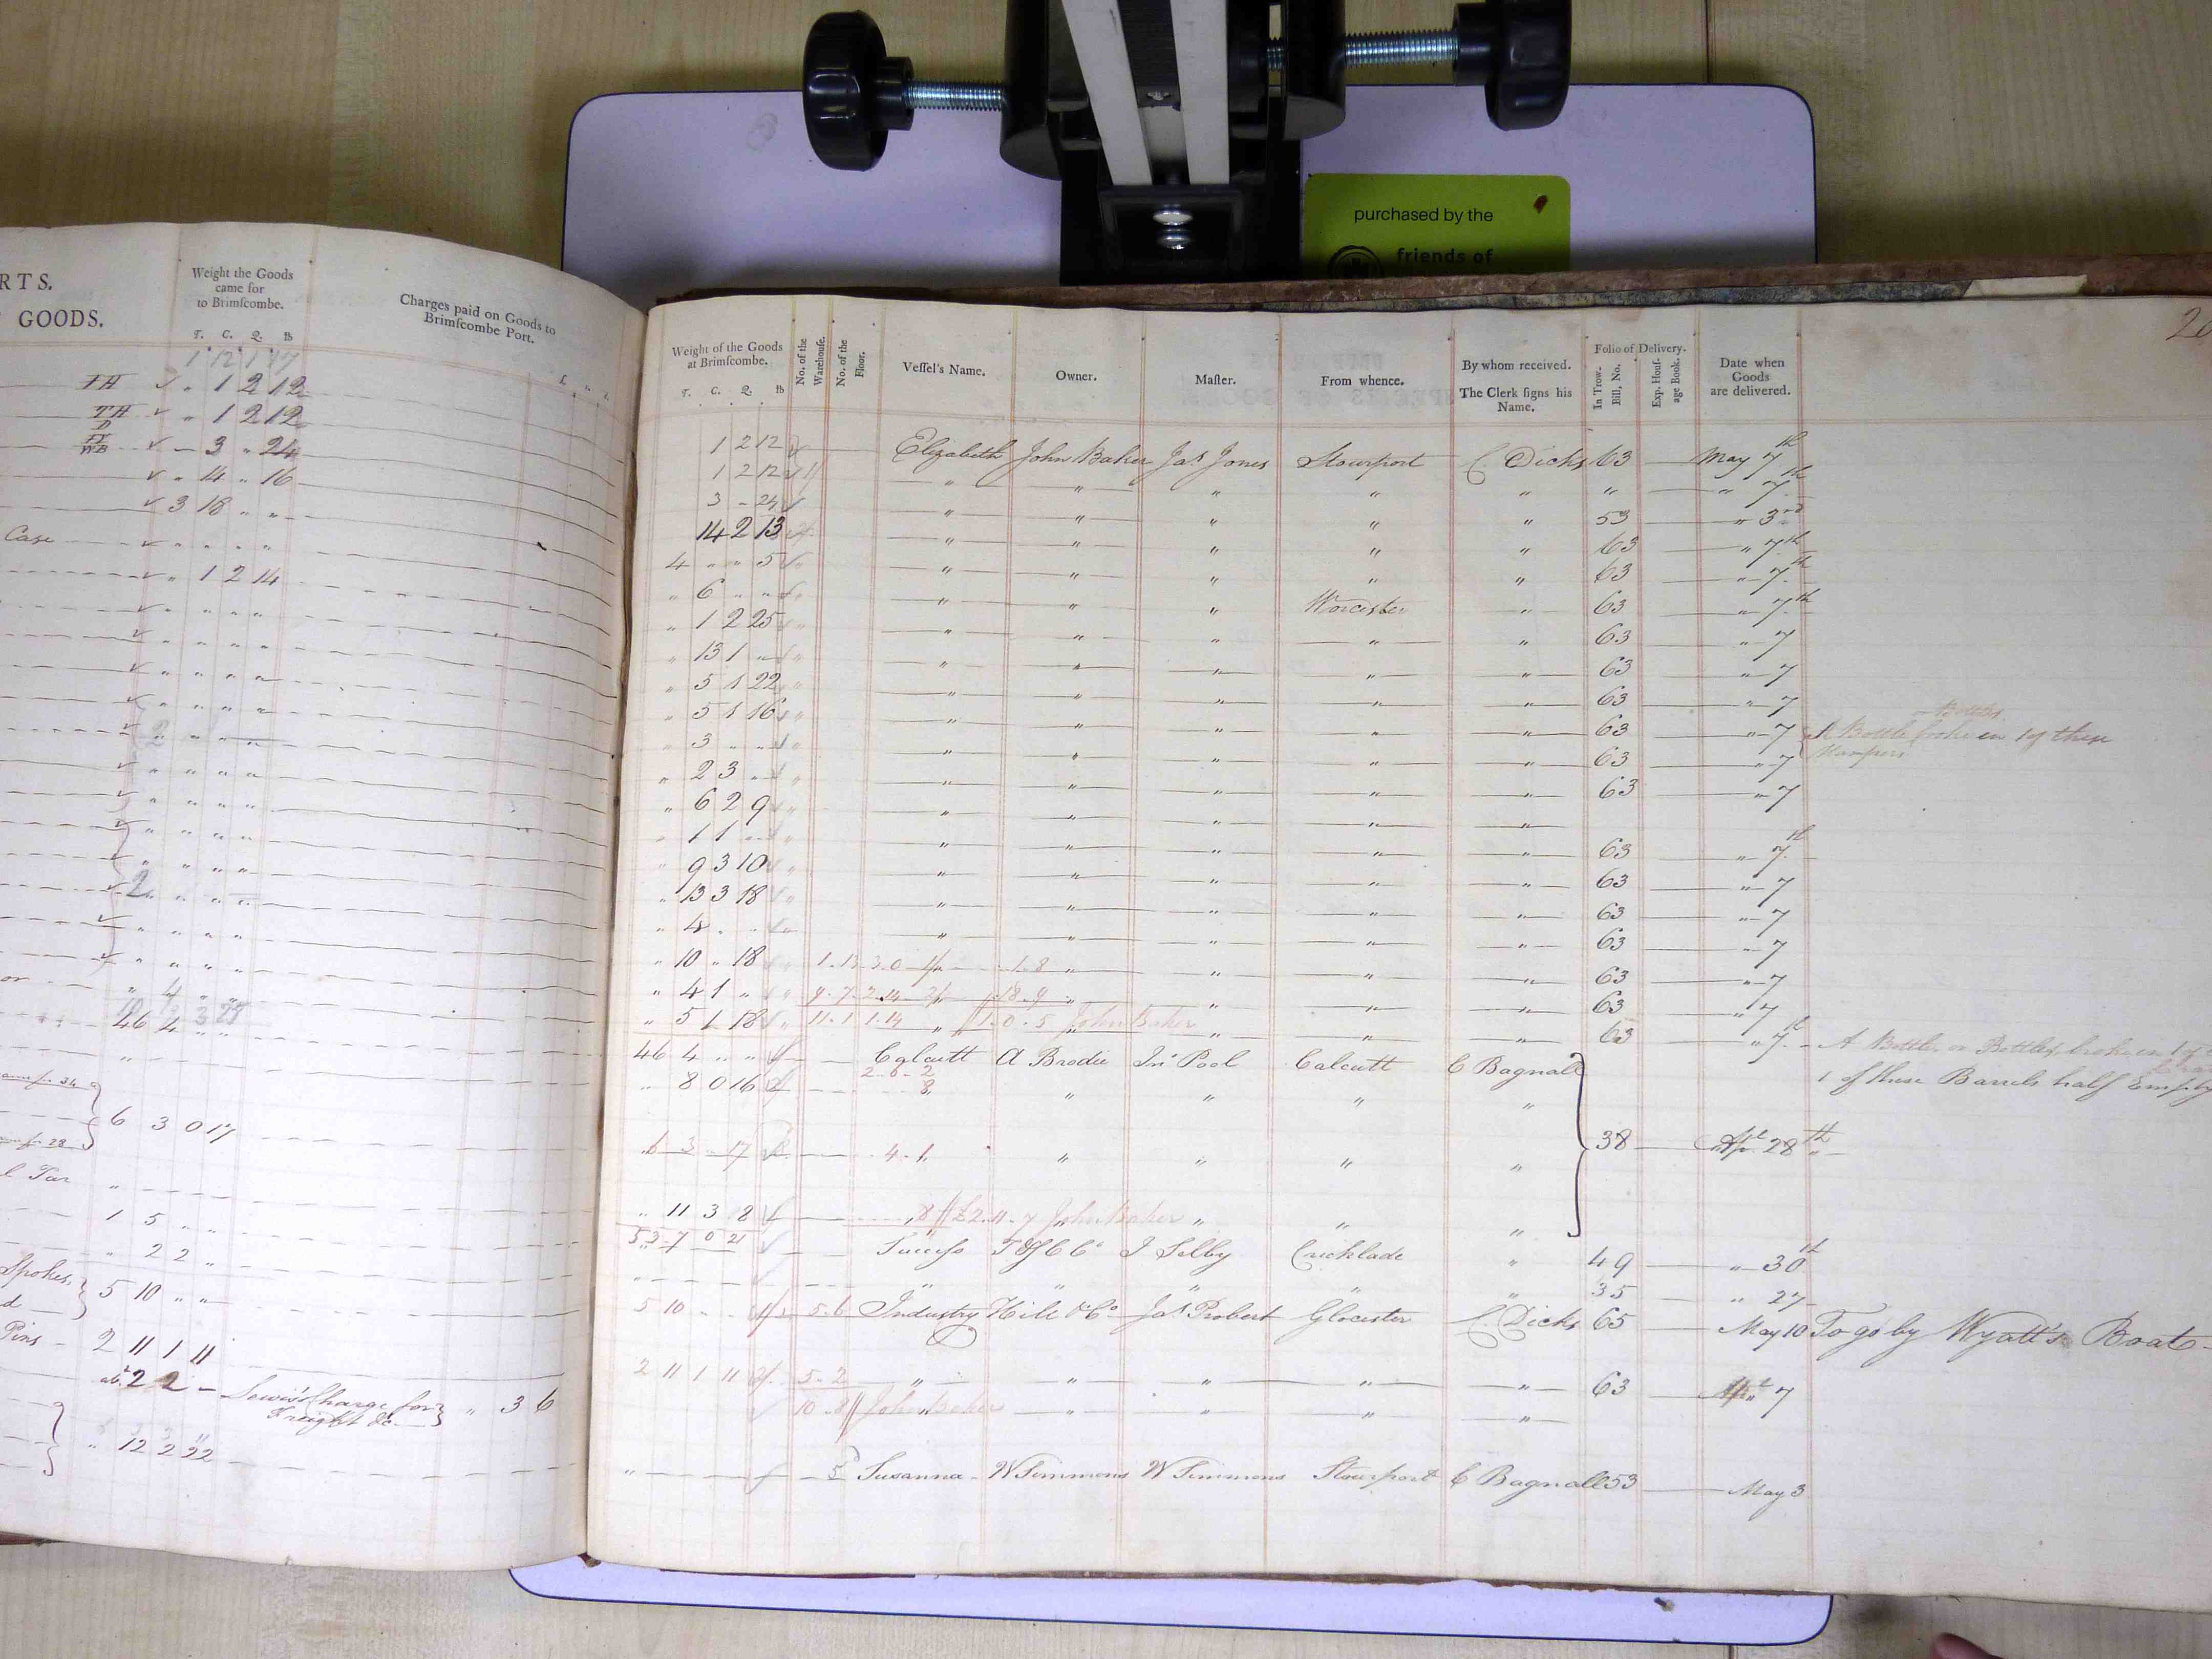 purchased by the
friends of
RTS.
GOODS.
Weight the Goods
came for
to Brimſcombe.
T. C. Q. lb
Charges paid on Goods to
Brimſcombe Port.
1 12 1 17
" 1 2 12
" 1 2 12
— 3 " 24
" 14 " 16
3 18 " "
Case
" 1 2 14
or
" 4 " "
46 4 " "
6 3 0 17
l Tar
1 5 " "
" 2 2 "
Spokes
d
5 10 " "
Pins
2 11 1 11
2 2 — Lewis's Charge for } " 3 6
Freight &c
" 12 2 22
20
Weight of the Goods
at Brimſcombe.
T. C. Q. lb
No. of the
Warehouſe.
No. of the
Floor.
Veſſel's Name.
Owner.
Maſter.
From whence.
By whom received.
The Clerk ſigns his
Name.
Folio of Delivery.
In Trow-
Bill, No.
Exp. Houſ-
age Book.
Date when
Goods
are delivered.
1 2 12 Elizabeth John Baker Jas Jones Stourport C. Dicks 63 May 7th
1 2 12 " " " " " " " 7th
3 " 24 " " " " " 53 " 3rd
14 2 13 " " " " " 63 " 7th
4 " " 5 " " " " " 63 " 7th
" 6 " " " " " Worcester " 63 " 7th
" 1 2 25 " " " " " 63 " 7
" 13 1 " " " " " " 63 " 7
" 5 1 22 " " " " " 63 " 7
" 5 1 16 " " " " " 63 " 7 A Bottle broke in 1 of these
Hampers
" 3 " " " " " " " 63 " 7
" 2 3 " " " " " " 63 " 7
" 6 2 9 " " " " "
" 1 1 " " " " " " 63 " 7th
" 9 3 10 " " " " " 63 " 7
" 13 3 18 " " " " " 63 " 7
" 4 " " " " " " " 63 " 7
" 10 " 18 1.13.3.0 1.8 " " " " 63 " 7
" 4 1 " 9.7.2.14 18.9 " " " " 63 " 7
" 5 1 18 11.1 1.14 1.0.5 John Baker " " " 63 " 7th A Bottle, or Bottles, broke in 1 of
46 4 " " Calcutt A Brodie Jno Pool Calcutt C Bagnall
1 of these Barrels half Empty
2-6-2
" 8 0 16 8 " " " "
" 6 3 " 17 4.1. " " " " 38 Apl 28th
" 11 3 8 8 £2.11.7 John Baker " " "
53 7 0 21
Success T & S C Co J Selby Cricklade " 49 " 30th
" " " " 35 " 27
5 10 5.6 Industry Hill & Co Jas Probert Glocester C. Dicks 65 May 10 To go by Wyatt's Boat
2 11 1 11 5-2 " " " " " 63 " 7
10.8 John Baker " " " "
" 5 Susanna W Simmons W Simmons Stourport C Bagnall 53 May 3